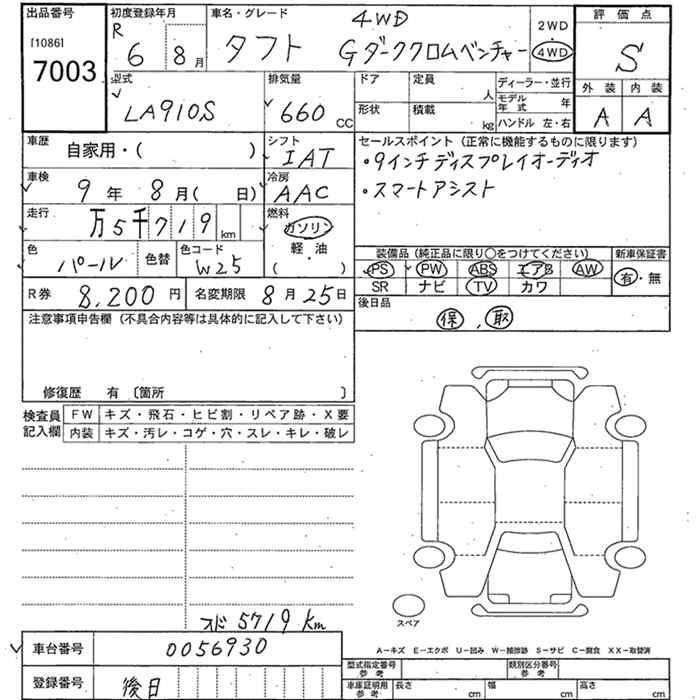 出品番号
[1086]
7003
初度登録年月
R 6 8月
車名・グレード
4WD
タフト Gダーククロムベンチャー
2WD
・
4WD
評価点
S
外装 内装
A A
型式
LA910S
排気量
660 CC
ドア 定員 人
形状 積載 kg
ディーラー・並行
モデル年式 年
ハンドル 左・右
車歴
自家用・( )
シフト
IAT
車検
9年 8月( 日)
冷房
AAC
走行
万5千719 km
燃料
ガソリン
軽・油
( )
色
パール
色替
色コード
W25
セールスポイント (正常に機能するものに限ります)
・9インチディスプレイオーディオ
・スマートアシスト
装備品 (純正品に限り○をつけてください)
新車保証書
PS PW ABS エアB AW
有・無
SR ナビ TV カワ
R券 8,200円
名変期限 8月25日
後日品
保、取
注意事項申告欄 (不具合内容等は具体的に記入して下さい)
修復歴 有 〔箇所 〕
検査員記入欄
FW キズ・飛石・ヒビ割・リペア跡・X要
内装 キズ・汚レ・コゲ・穴・スレ・キレ・破レ
スペア
5719 km
車台番号 0056930
登録番号 後日
A−キズ E−エクボ U−凹み W−補修跡 S−サビ C−腐食 XX−取替済
型式指定番号 参考
類別区分番号 参考
車庫証明用 参考
長さ cm 幅 cm 高さ cm